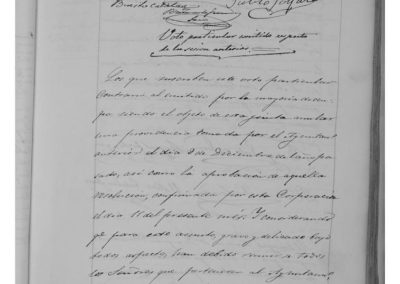 Voto particular emitido respecto
de la sesion anterior.
Los que suscriben este voto particular
contrario al emitido por la mayoria
siendo el objeto de esta junta anular
una providencia tomada por el Ayuntam.
anterior el dia 9 de Diciembre del año pa
sado, asi como la aprobacion de aquella
resolucion, confirmada por esta Corporacion
el dia 17 del presente mes. Y considerando
qe para este asunto, grave y delicado bajo
todos aspectos, han debido reunir a todos
los Señores que pertenecen al Ayuntam.